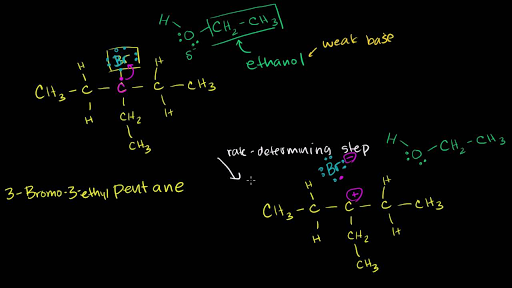 H
O CH₂-CH₃
δ⁻
ethanol
weak base
Br
H H
CH₃ - C - C - C - CH₃
H CH₂ H
CH₃
3-Bromo-3-ethyl pentane
rate-determining step
H
O - CH₂ - CH₃
Br -
H + H
CH₃ - C - C - C - CH₃
H CH₂ H
CH₃